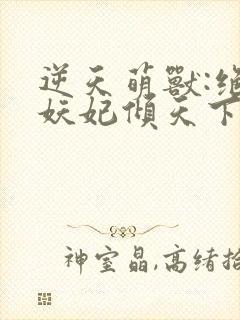 逆天萌獸:绝
妖妃傾天下
神室晶,高绪拾